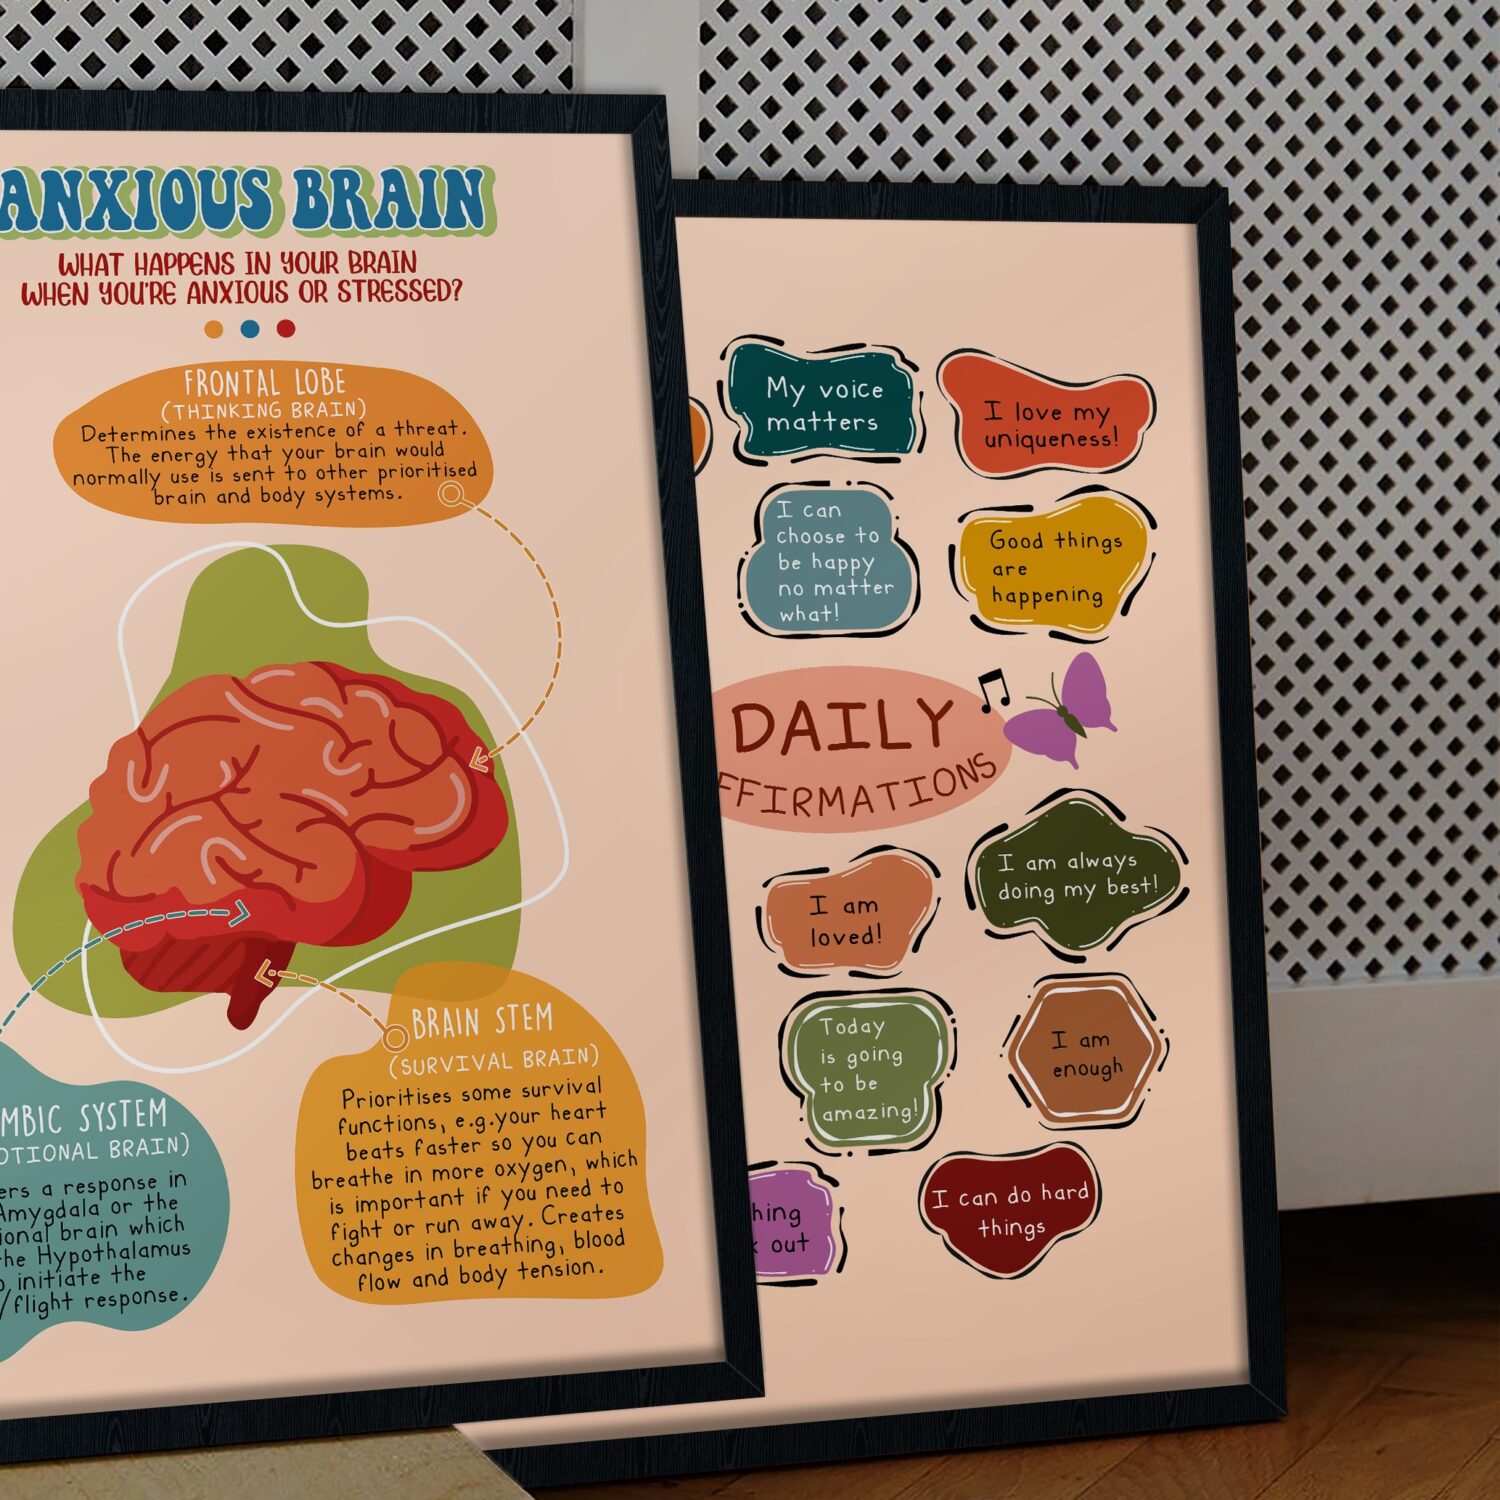 ANXIOUS BRAIN
WHAT HAPPENS IN YOUR BRAIN
WHEN YOU'RE ANXIOUS OR STRESSED?
FRONTAL LOBE
(THINKING BRAIN)
Determines the existence of a threat.
The energy that your brain would
normally use is sent to other prioritised
brain and body systems.
BRAIN STEM
(SURVIVAL BRAIN)
Prioritises some survival
functions, e.g.your heart
beats faster so you can
breathe in more oxygen, which
is important if you need to
fight or run away. Creates
changes in breathing, blood
flow and body tension.
SYSTEM
BRAIN)
a response in
Amygdala or the
brain which
the Hypothalamus
initiate the
/flight response.
My voice
matters
I love my
uniqueness!
I can
choose to
be happy
no matter
what!
Good things
are
happening
DAILY
FFIRMATIONS
I am
loved!
I am always
doing my best!
Today
is going
to be
amazing!
I am
enough
hing
out
I can do hard
things